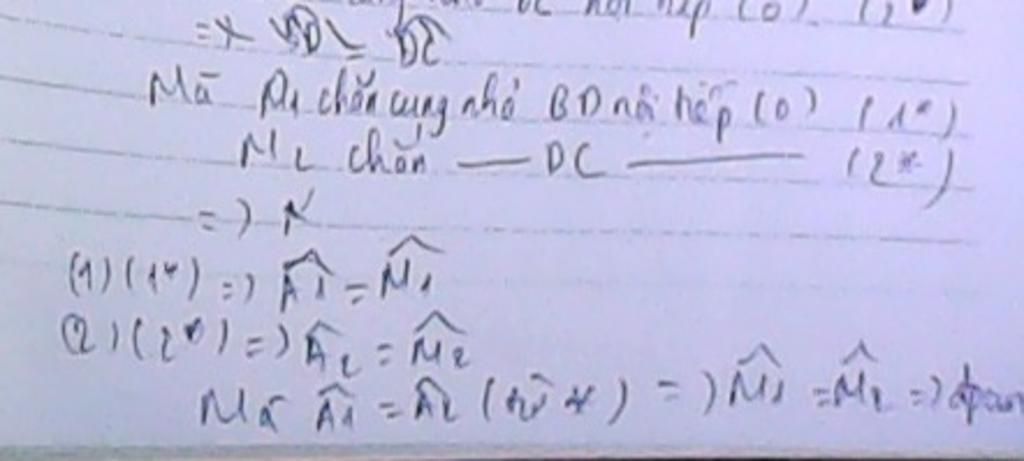 nội tiếp (O) (2*)
=> BD = DC
Mà M1 chắn cung nhỏ BD nội tiếp (O) (1*)
M2 chắn — DC —— (2*)
=)
(1)(1*) =) Â1 = M̂1
(2)(2*) =) Â2 = M̂2
Mà Â1 = Â2 (từ *) =) M̂1 = M̂2 =) đpcm